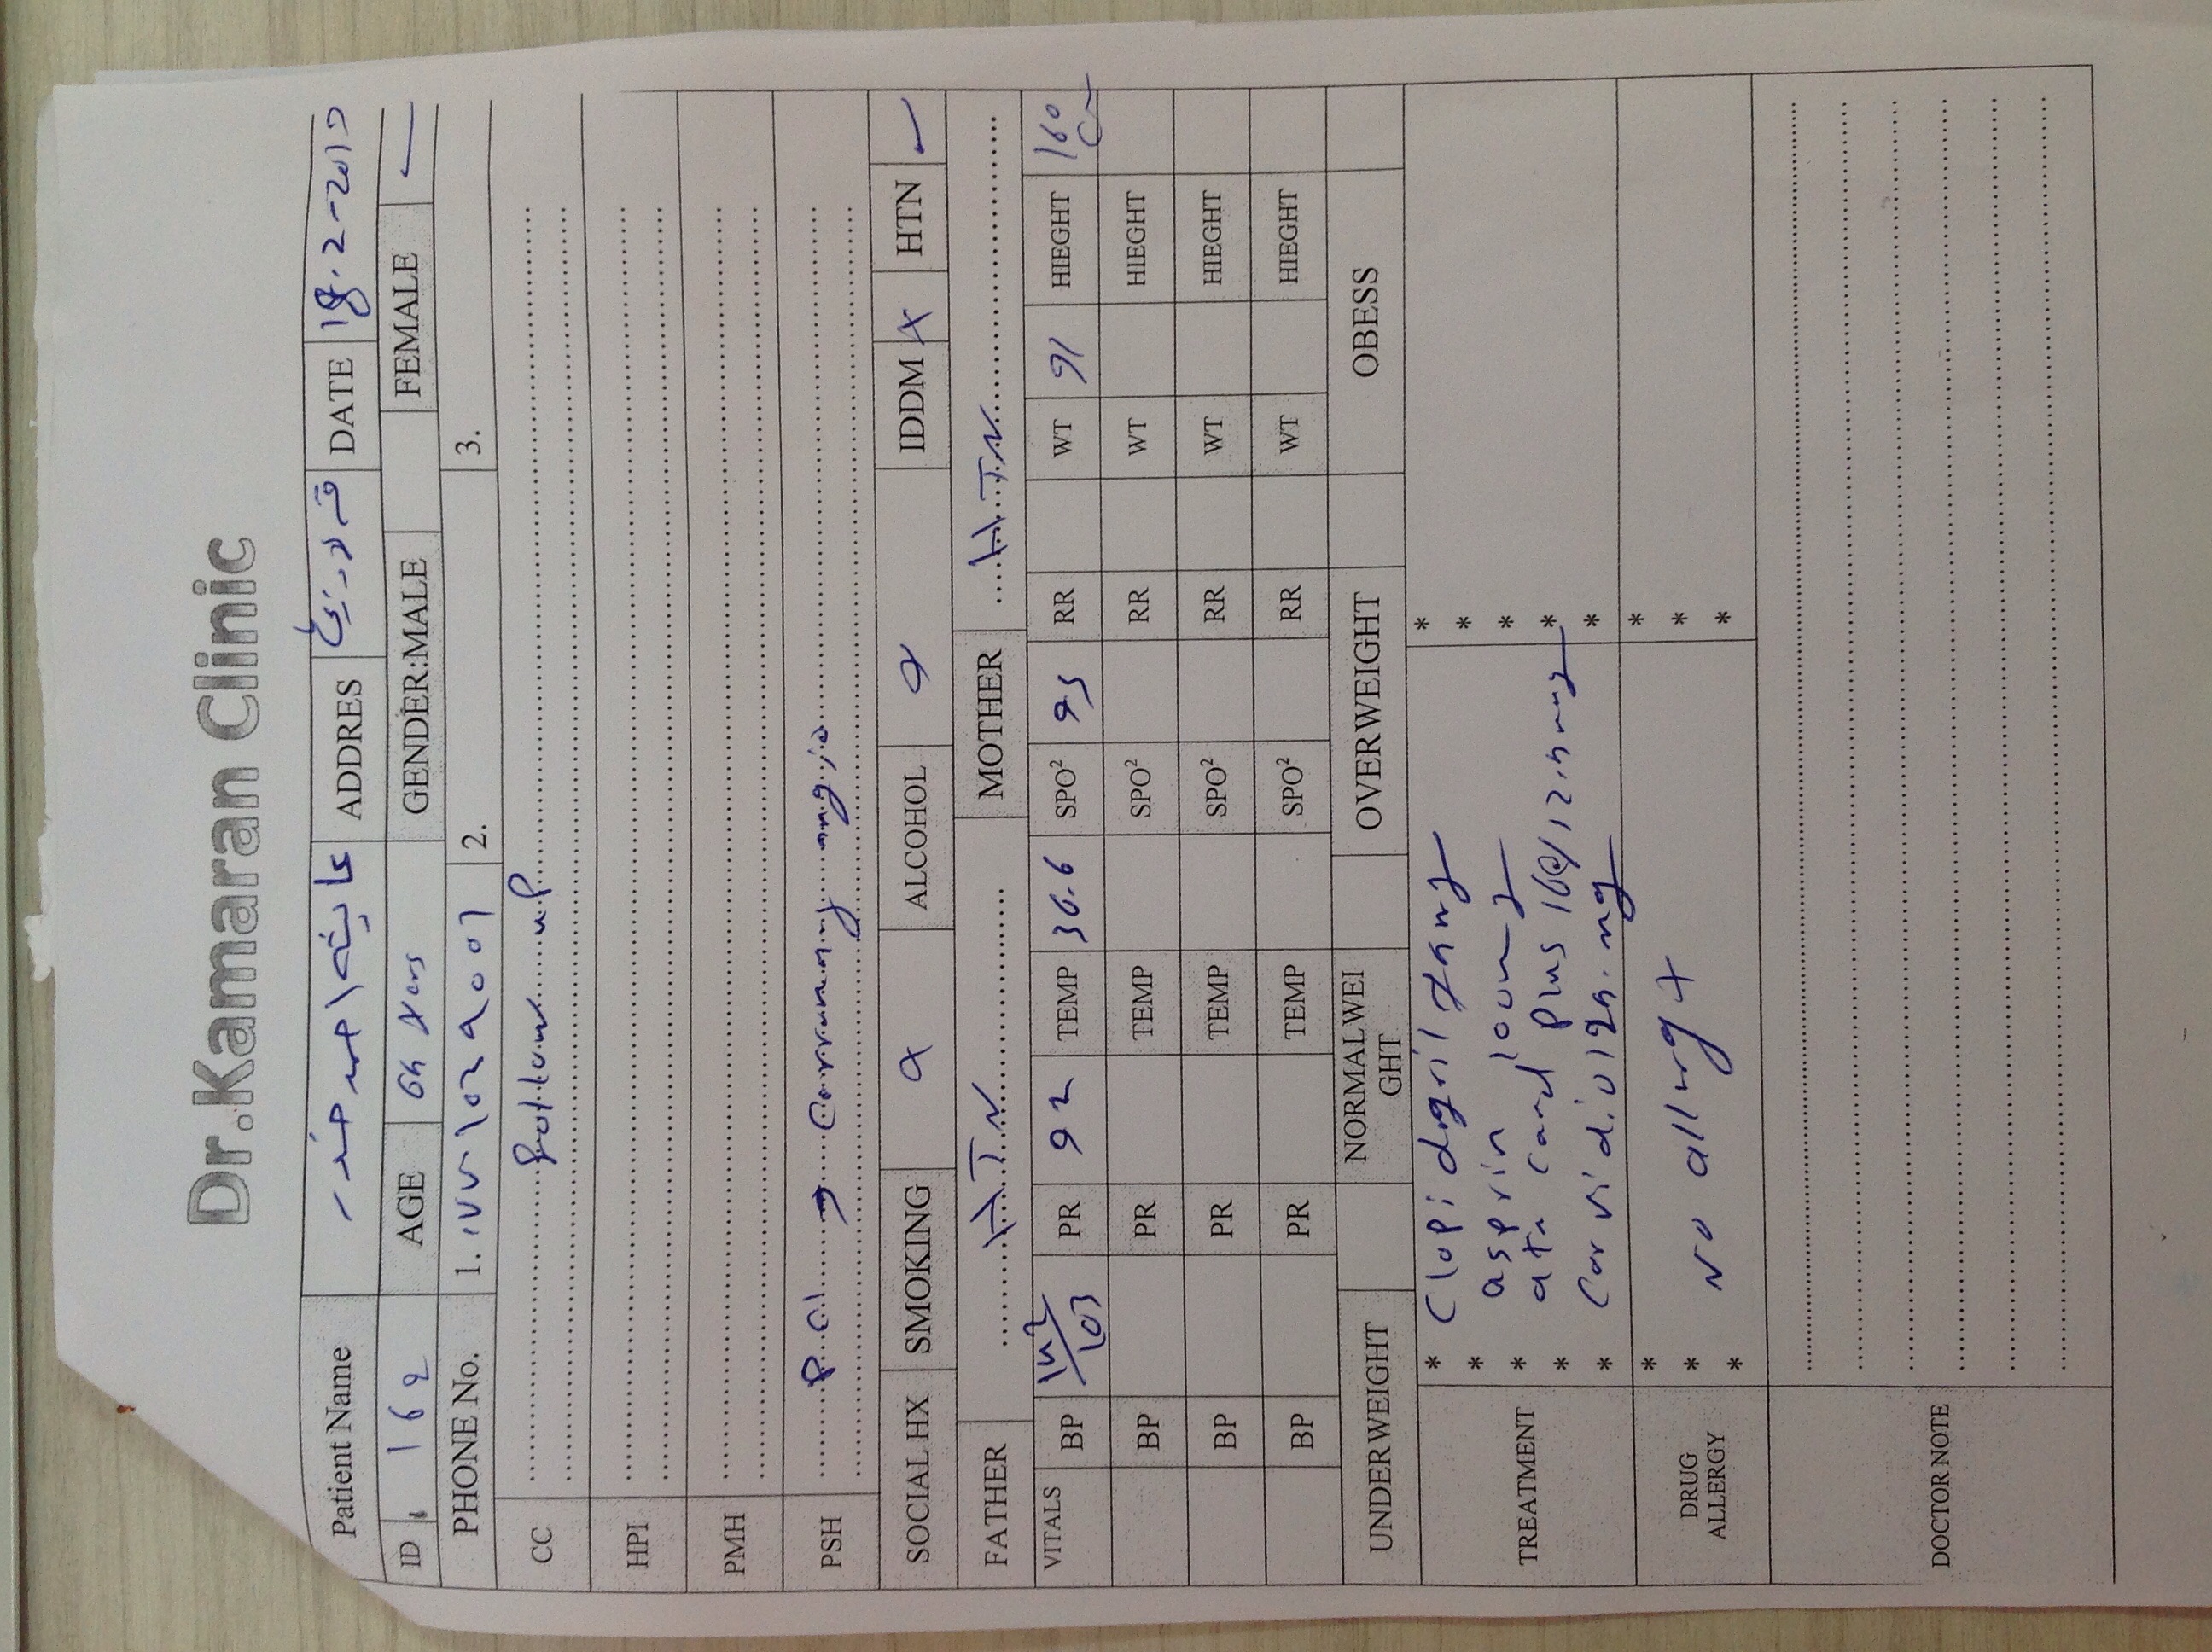 Dr.Kamaran Clinic
Patient Name ADDRES DATE 18-2-2019
ID 162 AGE 64 Yers GENDER:MALE FEMALE ✓
PHONE No. 1. 2. 3.
CC Follow up
HPI
PMH
PSH P.CI → Corrunary angio
SOCIAL HX SMOKING ALCOHOL IDDM X HTN ✓
FATHER H.T.N MOTHER H.T.N
VITALS BP PR 92 TEMP 36.6 SPO² 95 RR WT 91 HIEGHT 160
BP PR TEMP SPO² RR WT HIEGHT
BP PR TEMP SPO² RR WT HIEGHT
BP PR TEMP SPO² RR WT HIEGHT
UNDERWEIGHT NORMALWEI GHT OVERWEIGHT OBESS
TREATMENT
* Clopidogril 75mg *
* asprin 100mg *
* atacand Plus 16/12.5mg *
* *
* *
DRUG ALLERGY
* No allergy *
* *
* *
DOCTOR NOTE